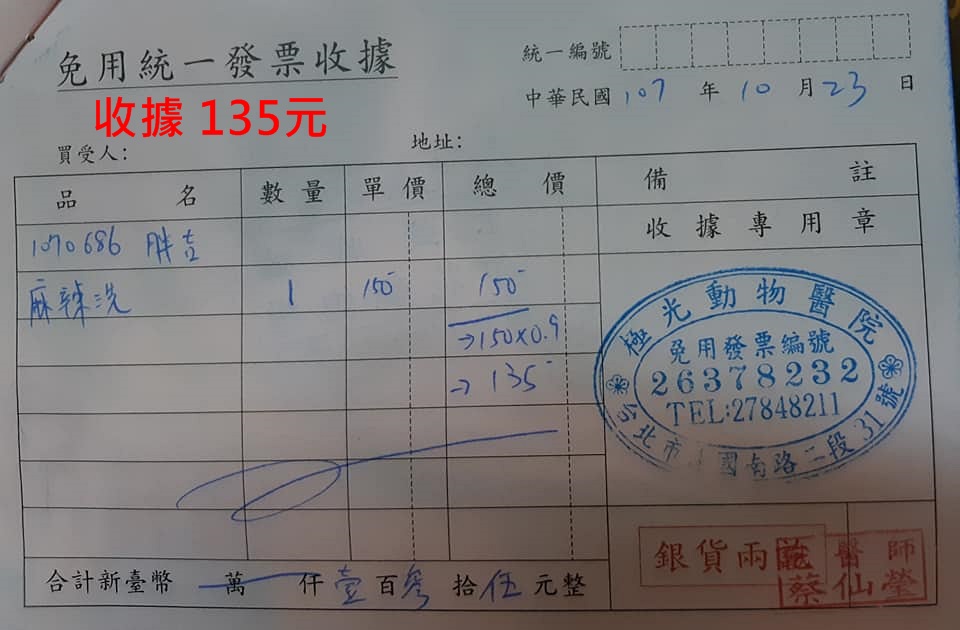 免用統一發票收據
統一編號
收據 135元
中華民國 107 年 10 月 23 日
買受人：
地址：
品名 數量 單價 總價 備註
收據專用章
1070686 胖吉
麻辣洗 1 150 150
→150×0.9
→ 135
極光動物醫院
免用發票編號
26378232
TEL:27848211
台北市 國南路二段31號
合計新臺幣 萬 仟壹百參拾伍元整
銀貨兩訖
醫師
蔡仙瑩